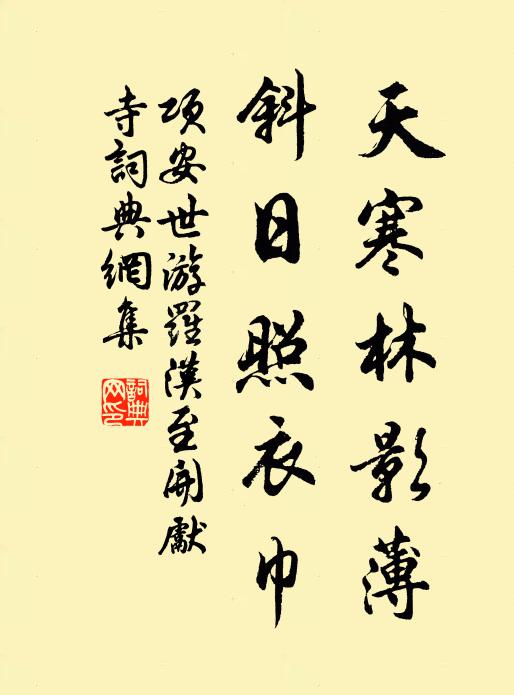 天寒林影薄
斜日照衣巾
項安世游羅漢至開獻
寺詞典網集
詞典网印